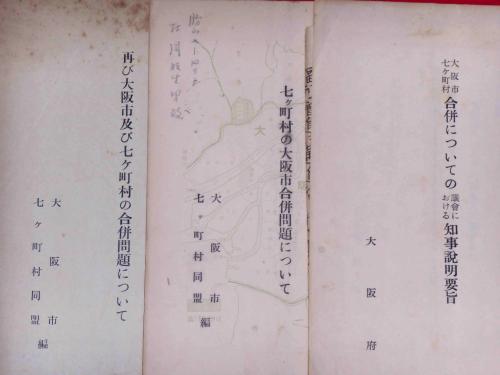 大阪市
七ヶ町村
合併についての
議會に
おける
知事説明要旨
大阪府
七ヶ町村の大阪市合併問題について
大阪市
七ヶ町村同盟
編
大
再び大阪市及び七ケ町村の合併問題について
大阪市
七ヶ町村同盟
編